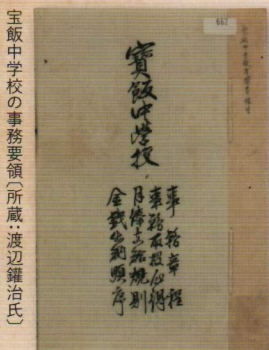 宝飯中学校の事務要領〔所蔵:渡辺鑵治氏〕
寳飯中学校
事務章程
事務取扱心得
月俸支給規則
金銭出納順序